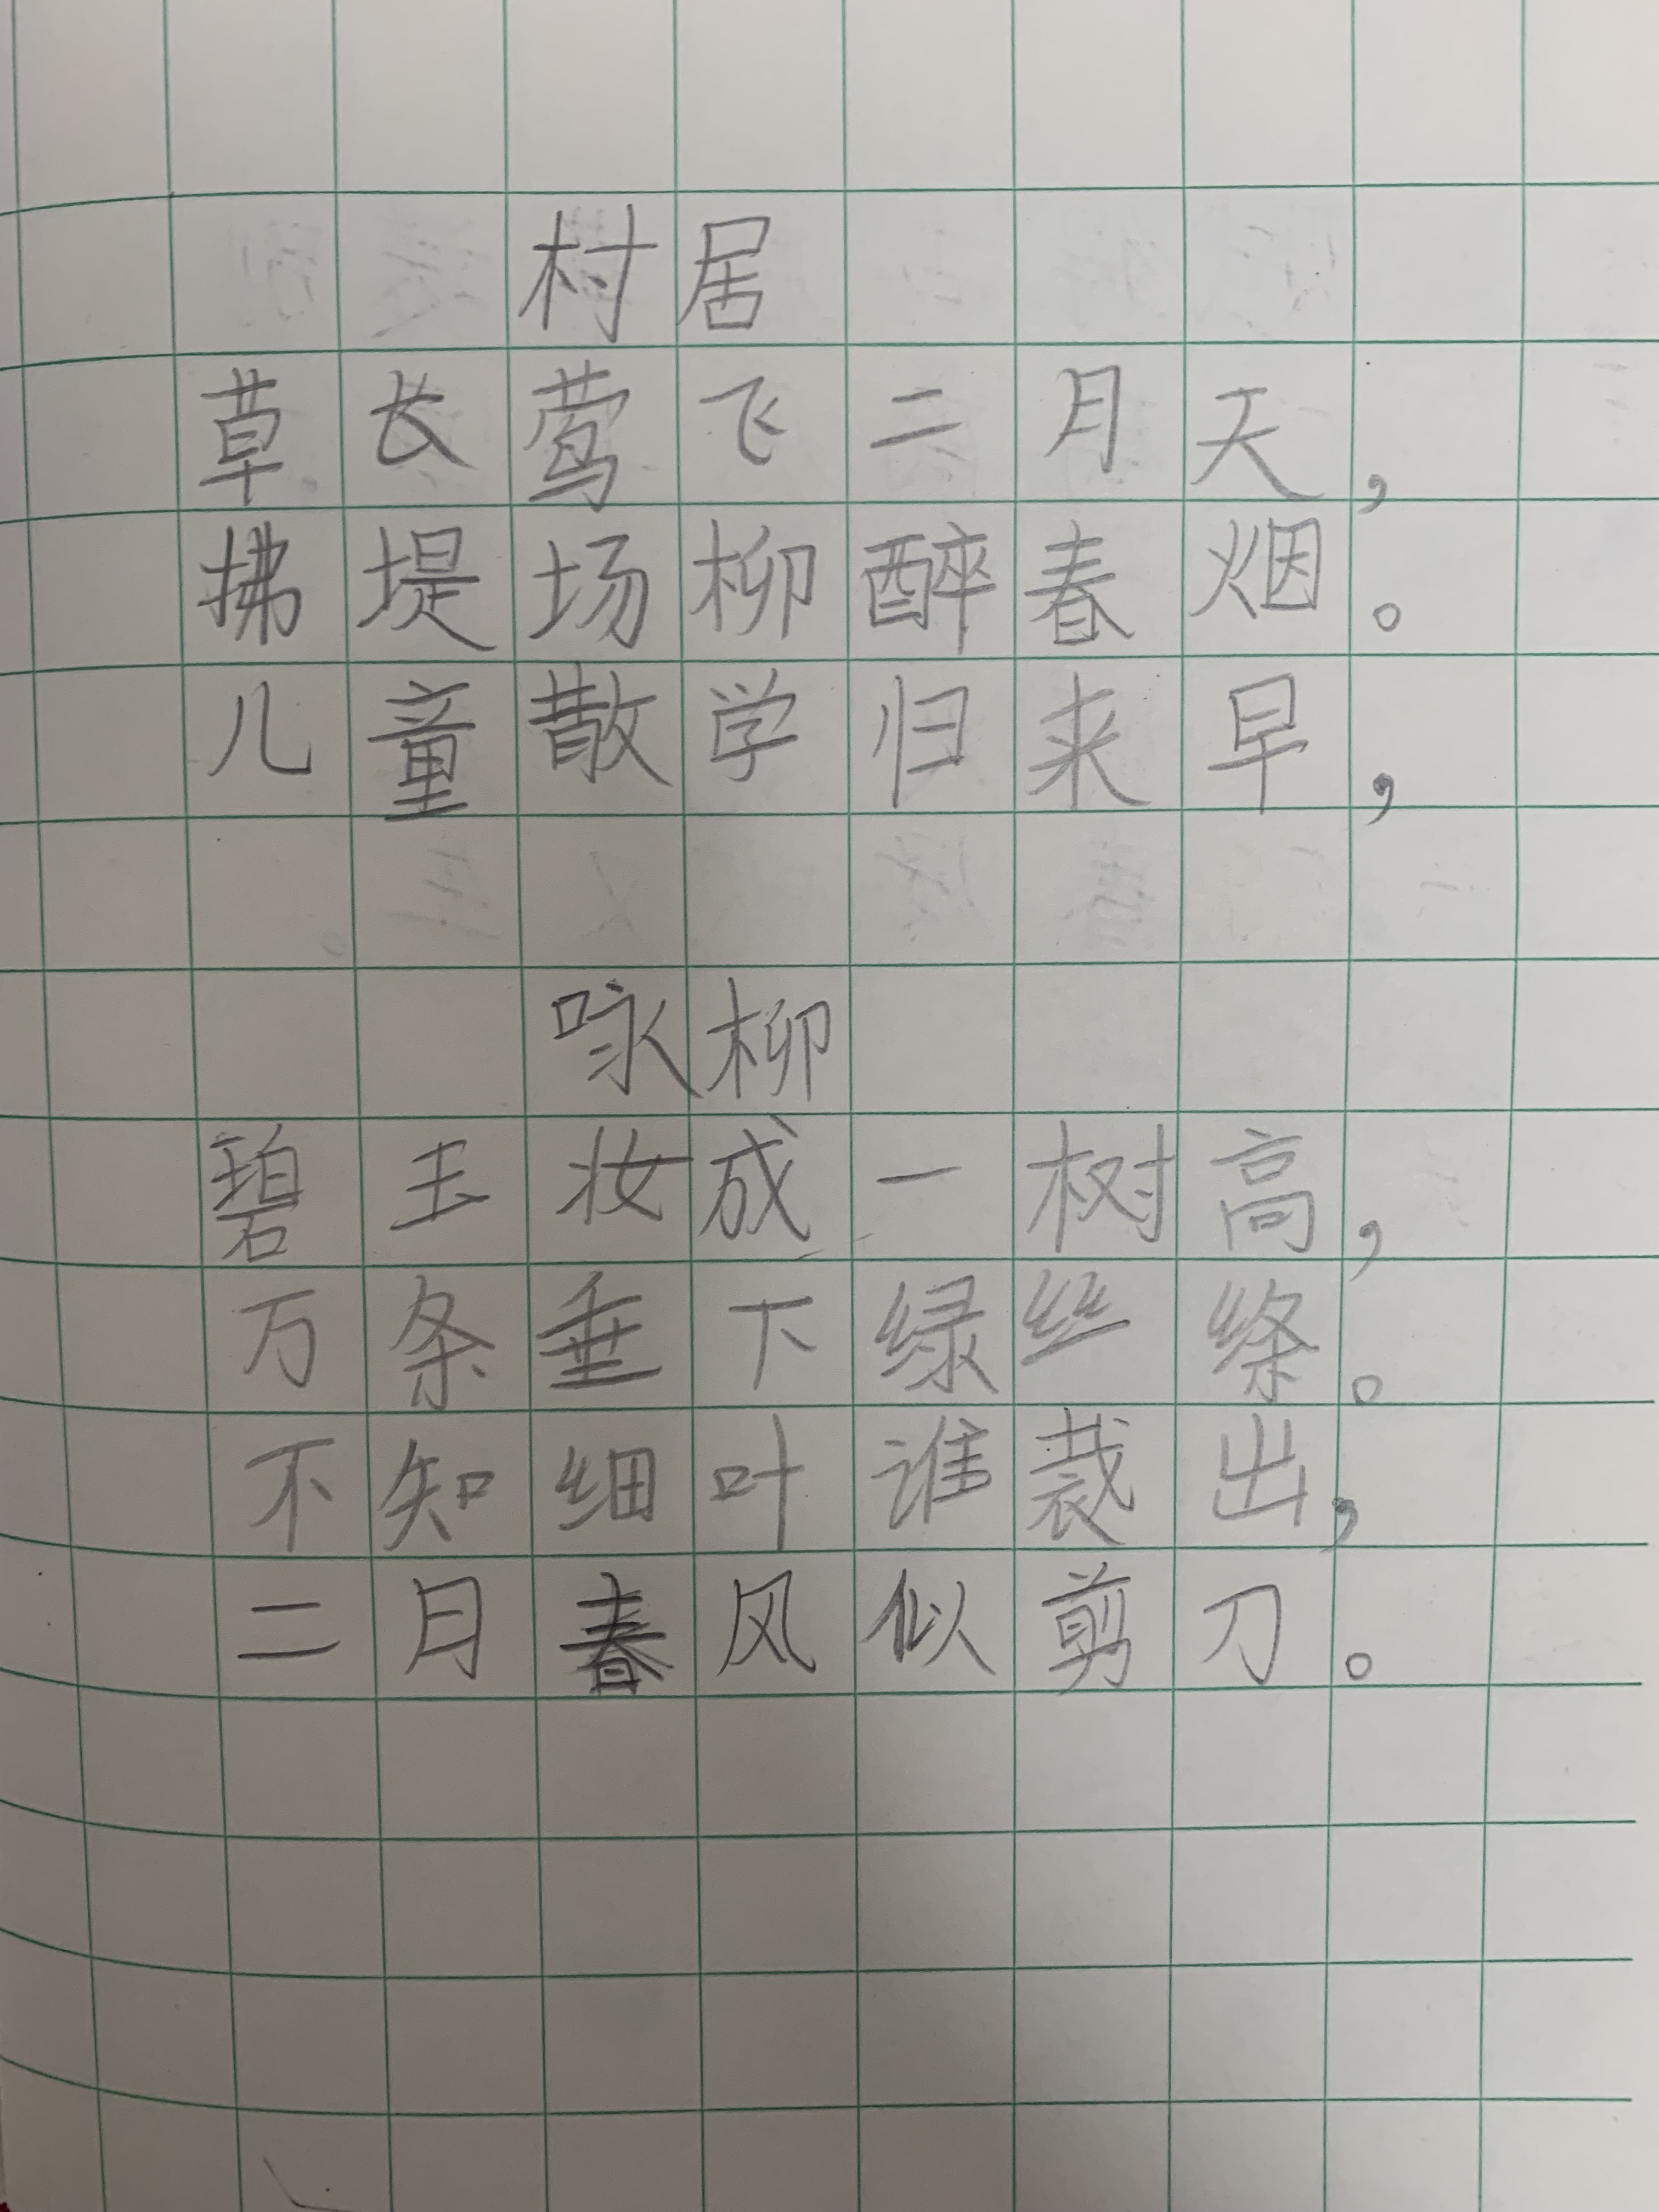 村居
草长莺飞二月天，
拂堤场柳醉春烟。
儿童散学归来早，
咏柳
碧玉妆成一树高，
万条垂下绿丝绦。
不知细叶谁裁出，
二月春风似剪刀。